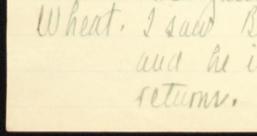 Wheat. I saw B
and he i
returns.